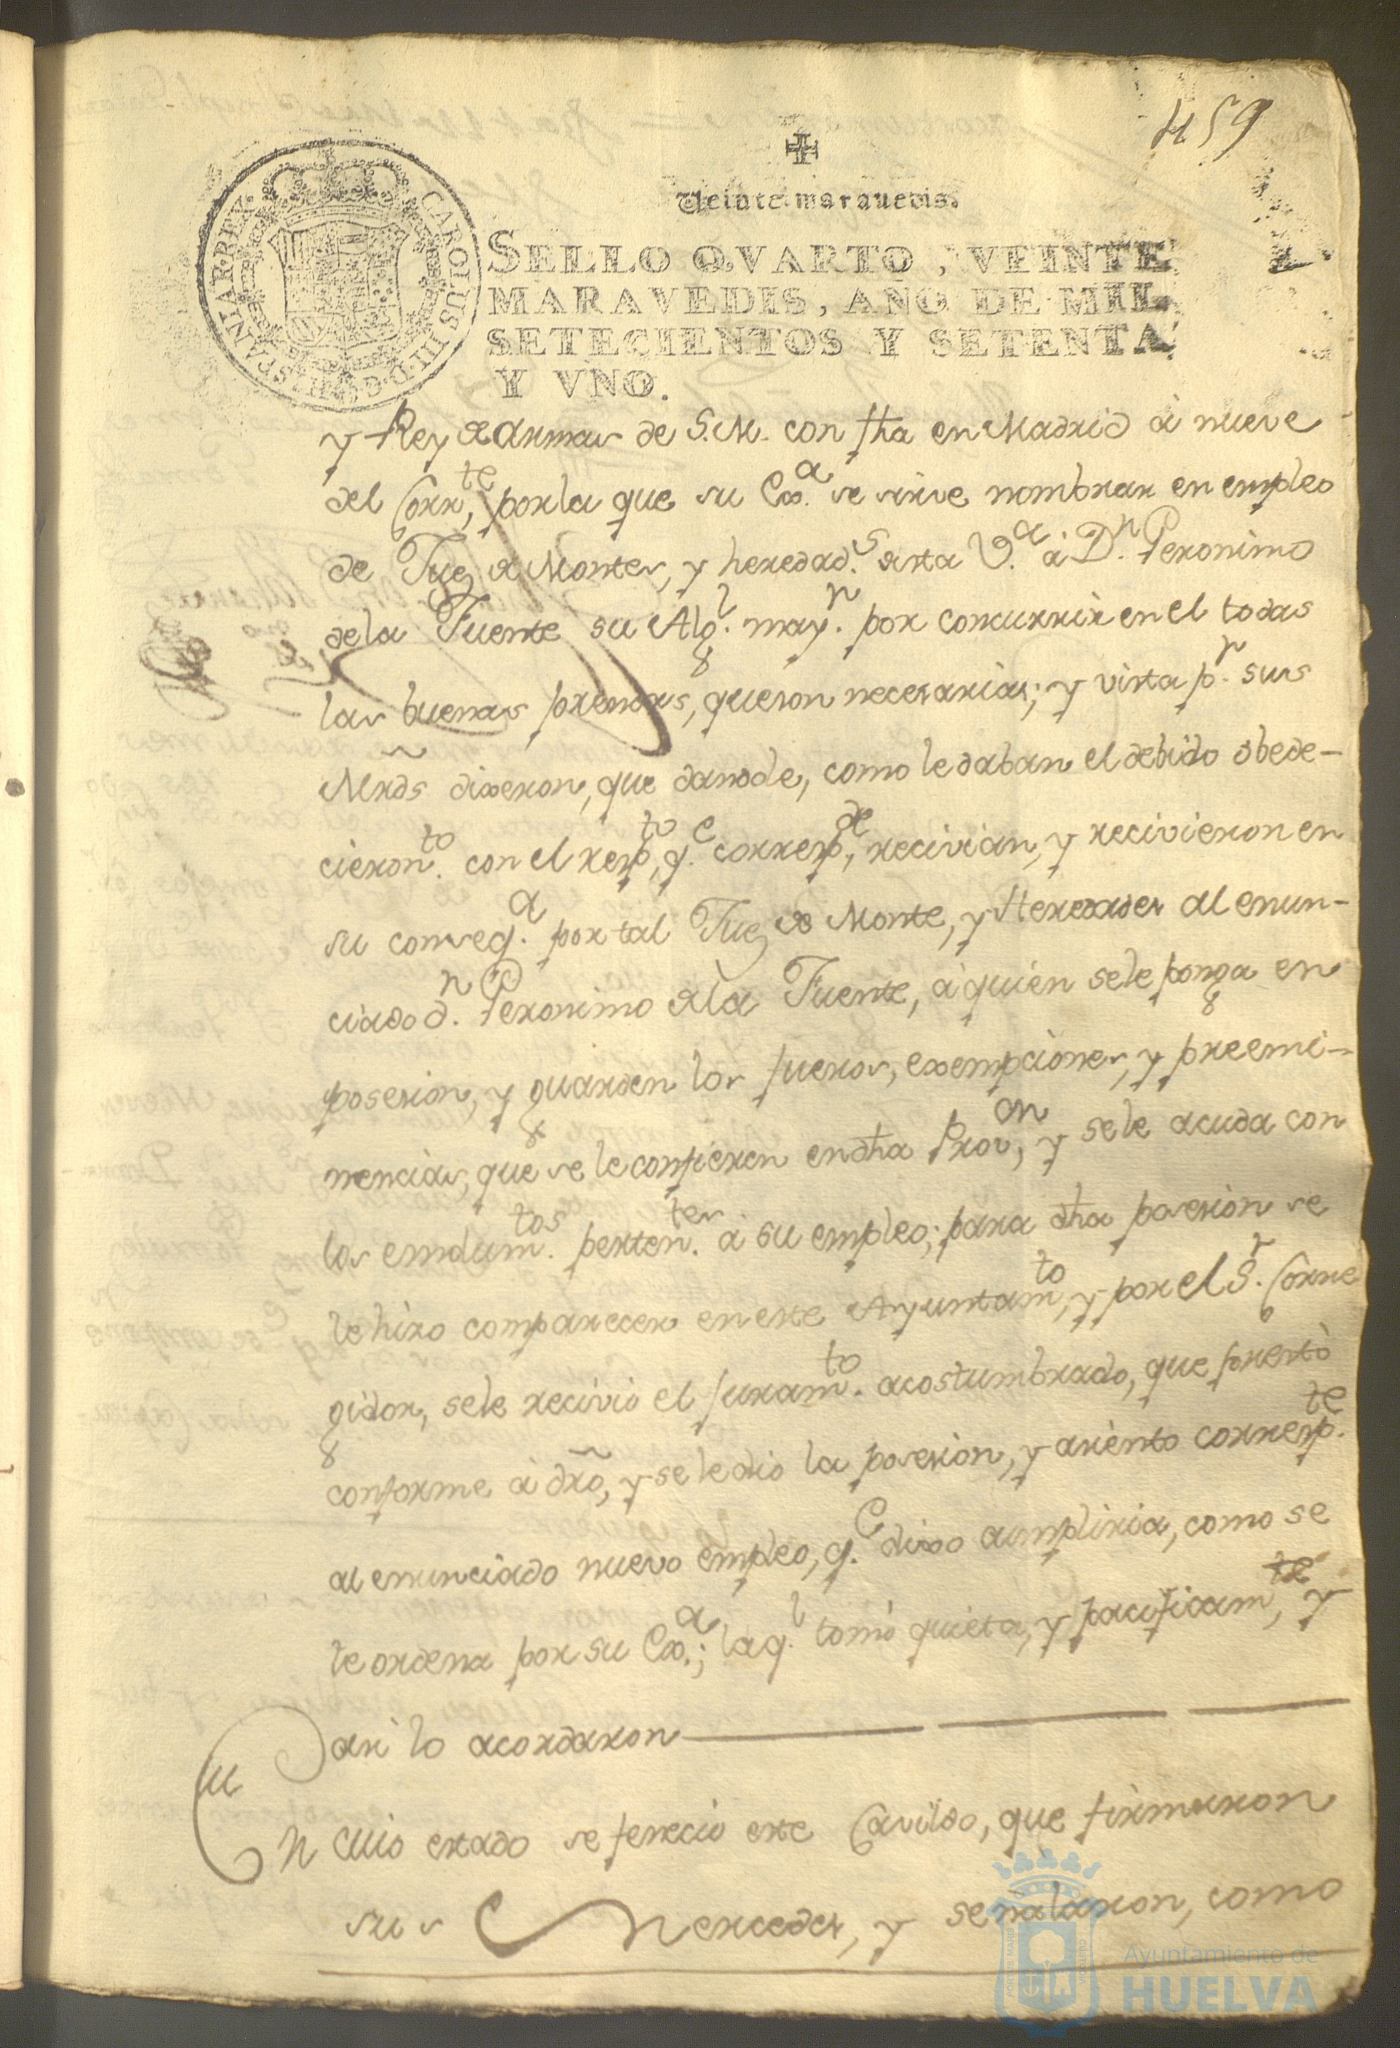 459
Veinte maravedis.
CAROLUS III D G HISPANIAR REX
SELLO QVARTO, VEINTE
MARAVEDIS, AÑO DE MIL
SETECIENTOS Y SETENTA
Y VNO.
y Rey de armas de S.M. con fha en Madrid à nueve
del Corrte, por la que su Exa. se sirve nombrar en empleo
de Juez de Montes, y heredads. de esta Va. à Dn. Geronimo
de la Fuente su Algl. mayr. por concurrir en el todas
las buenas prendas, que son necesarias; y vista pr. sus
Mrds dixeron, que dandole, como le daban el debido obede-
cieronto. con el respto, qe. correspde, recivian, y recivieron en
su conseqa. por tal Juez de Monte, y Heredades al enun-
ciado dn. Geronimo de la Fuente, à quien se le ponga en
posesion, y guarden los fueros, exempciones, y preemi-
nencias, que se le confieren en dha Provon, y se le acuda con
los emolumtos. pertentes. à su empleo; para dha posesion se
le hizo comparecer en este Ayuntamto, y por el Sr. Corre
gidor, se le recivio el juramto. acostumbrado, que prestò
conforme à dro, y se le dio la posesion, y asiento correspte.
al enunciado nuevo empleo, qe. dixo cumpliria, como se
le ordena por su Exa.; la ql. tomò quieta, y pacificamte, y
asi lo acordaron
En cuio estado se fenecio este Cavildo, que firmaron
sus Mercedes, y señalaron, como
Ayuntamiento de
HUELVA